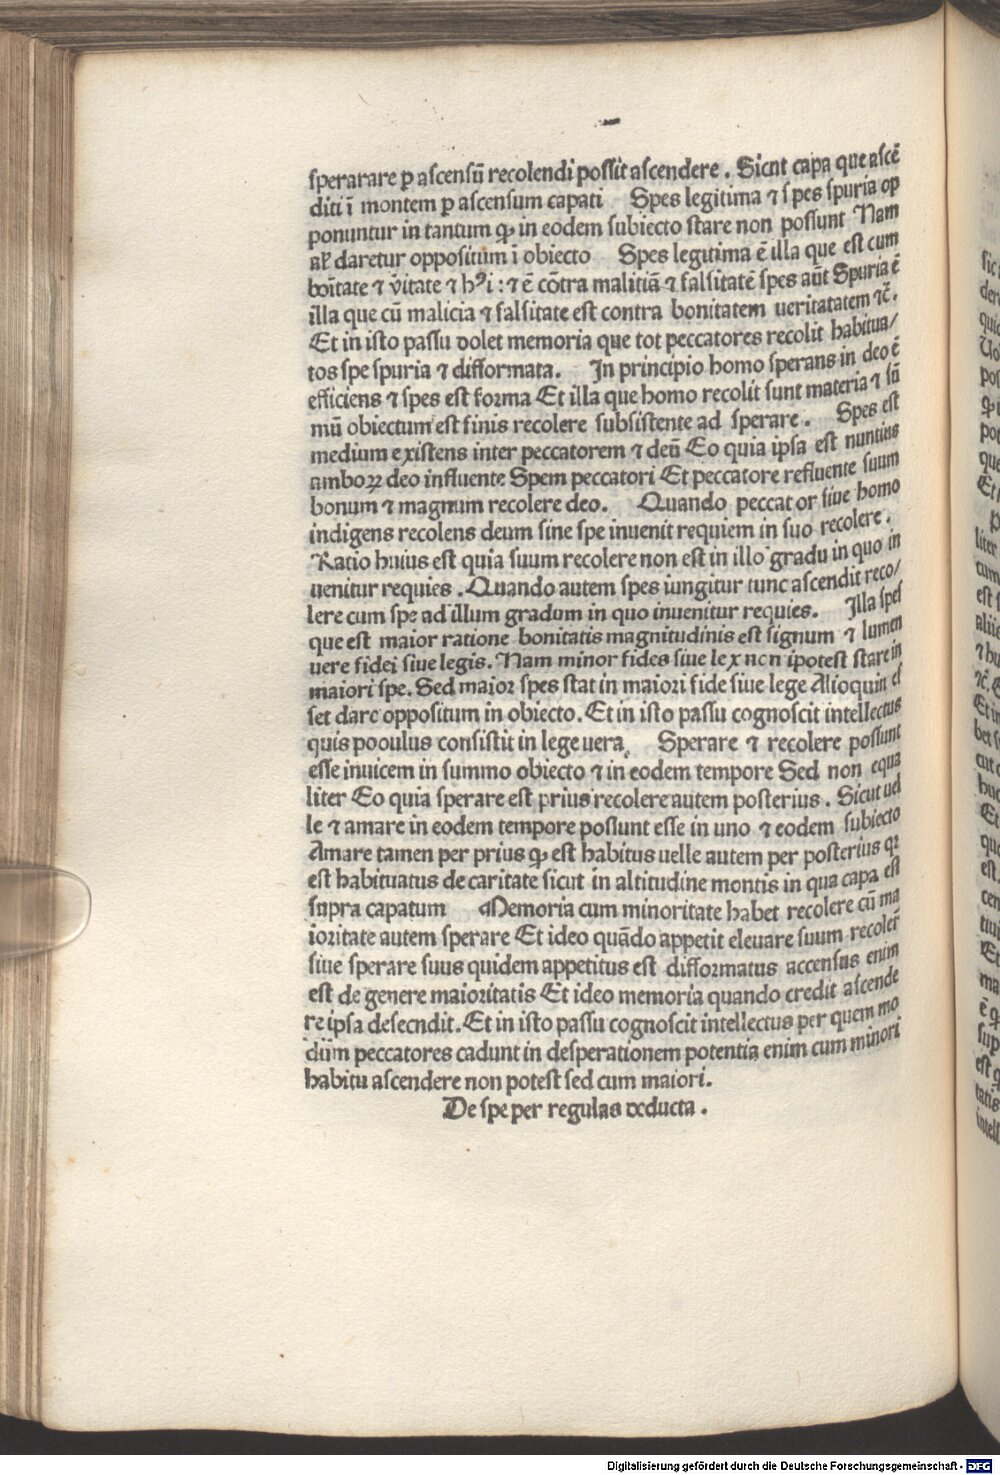 sperarare ꝑ ascensū recolendi possit ascendere. Sicut capa que ascē
diti ī montem ꝑ ascensum capati Spes legitima ⁊ spes spuria op
ponuntur in tantum ꝙ in eodem subiecto stare non possunt Nam
al̕ daretur oppositum ī obiecto Spes legitima ē illa que est cum
boītate ⁊ v̄itate ⁊ hꝰi : ⁊ ē cōtra malitiā ⁊ falsitatē spes aūt Spuria ē
illa que cū malicia ⁊ falsitate est contra bonitatem ueritatatem ⁊c̄.
Et in isto passu dolet memoria que tot peccatores recolit habitua/
tos spe spuria ⁊ difformata. In principio homo sperans in deo ē
efficiens ⁊ spes est forma Et illa que homo recolit sunt materia ⁊ sū
mū obiectum est finis recolere subsistente ad sperare. Spes est
medium existens inter peccatorem ⁊ deū Eo quia ipsa est nuntius
amboꝝ deo influente Spem peccatori Et peccatore refluente suum
bonum ⁊ magnum recolere deo. Quando peccator siue homo
indigens recolens deum sine spe inuenit requiem in suo recolere.
Ratio huius est quia suum recolere non est in illo gradu in quo in
uenitur requies. Quando autem spes iungitur tunc ascendit reco/
lere cum spe ad illum gradum in quo inuenitur requies. Illa spes
que est maior ratione bonitatis magnitudinis est signum ⁊ lumen
uere fidei siue legis. Nam minor fides siue lex non ipotest stare in
maiori spe. Sed maior spes stat in maiori fide siue lege Alioquin es
set dare oppositum in obiecto. Et in isto passu cognoscit intellectus
quis pooulus consistit in lege uera. Sperare ⁊ recolere possunt
esse inuicem in summo obiecto ⁊ in eodem tempore Sed non equa
liter Eo quia sperare est prius recolere autem posterius. Sicut uel
le ⁊ amare in eodem tempore possunt esse in uno ⁊ eodem subiecto
Amare tamen per prius ꝙ est habitus uelle autem per posterius qꝛ
est habituatus de caritate sicut in altitudine montis in qua capa est
supra capatum Memoria cum minoritate habet recolere cū ma
ioritate autem sperare Et ideo quādo appetit eleuare suum recoler̄
siue sperare suus quidem appetitus est difformatus accensus enim
est de genere maioritatis Et ideo memoria quando credit ascende
re ipsa desecndit. Et in isto passu cognoscit intellectus per quem mo
dūm peccatores cadunt in desperationem potentia enim cum minori
habitu ascendere non potest sed cum maiori.
De spe per regulas deducta.
Digitalisierung gefördert durch die Deutsche Forschungsgemeinschaft - DFG